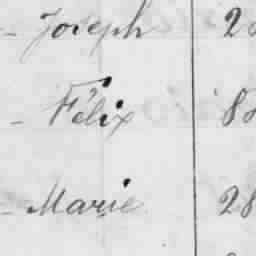 - Joseph
- Félix
- Marie 28